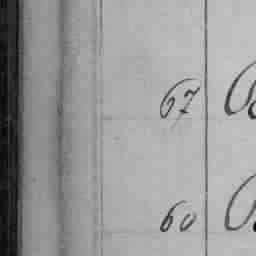 67
60